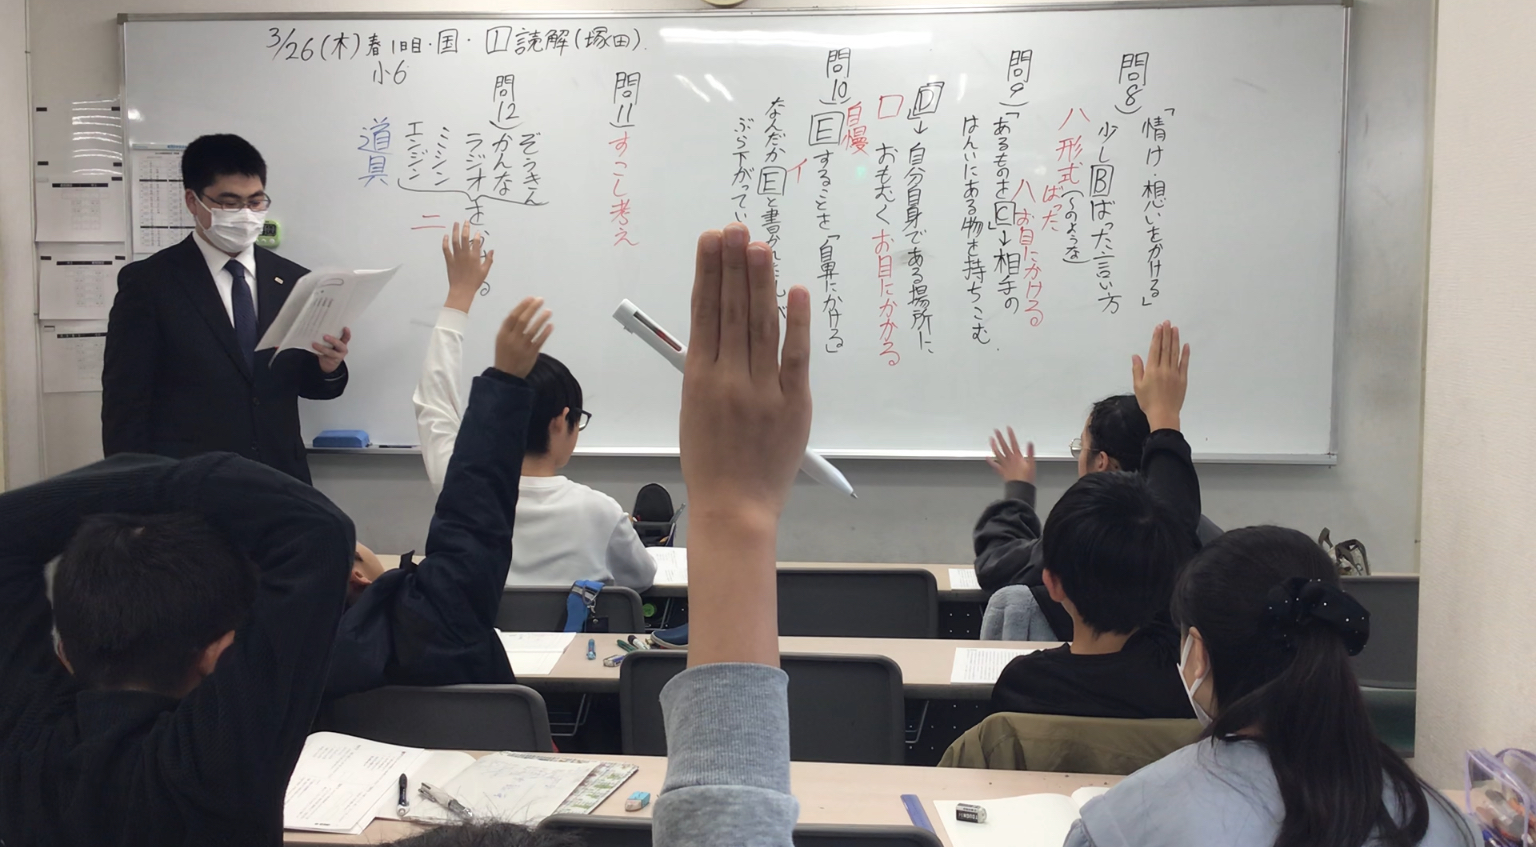 3/26(木)春1日目・国・1読解(塚田)
小6
問8)「情け・想いをかける」
少しBばった言い方
ハ 形式ばった
(〜のような)
問9)「あるものをC」→相手の
ハ お目にかける
はんいにある物を持ちこむ
D→自分自身である場所に、
おもむく お目にかかる
問10)Eすることを「自鼻にかける」
自慢
なんだかEと書かれた
イ
ぶら下がってい
問11)すこし考え
問12)ぞうきん
かんな
ラジオ
ミシン
エンジン
を
ニ
道具